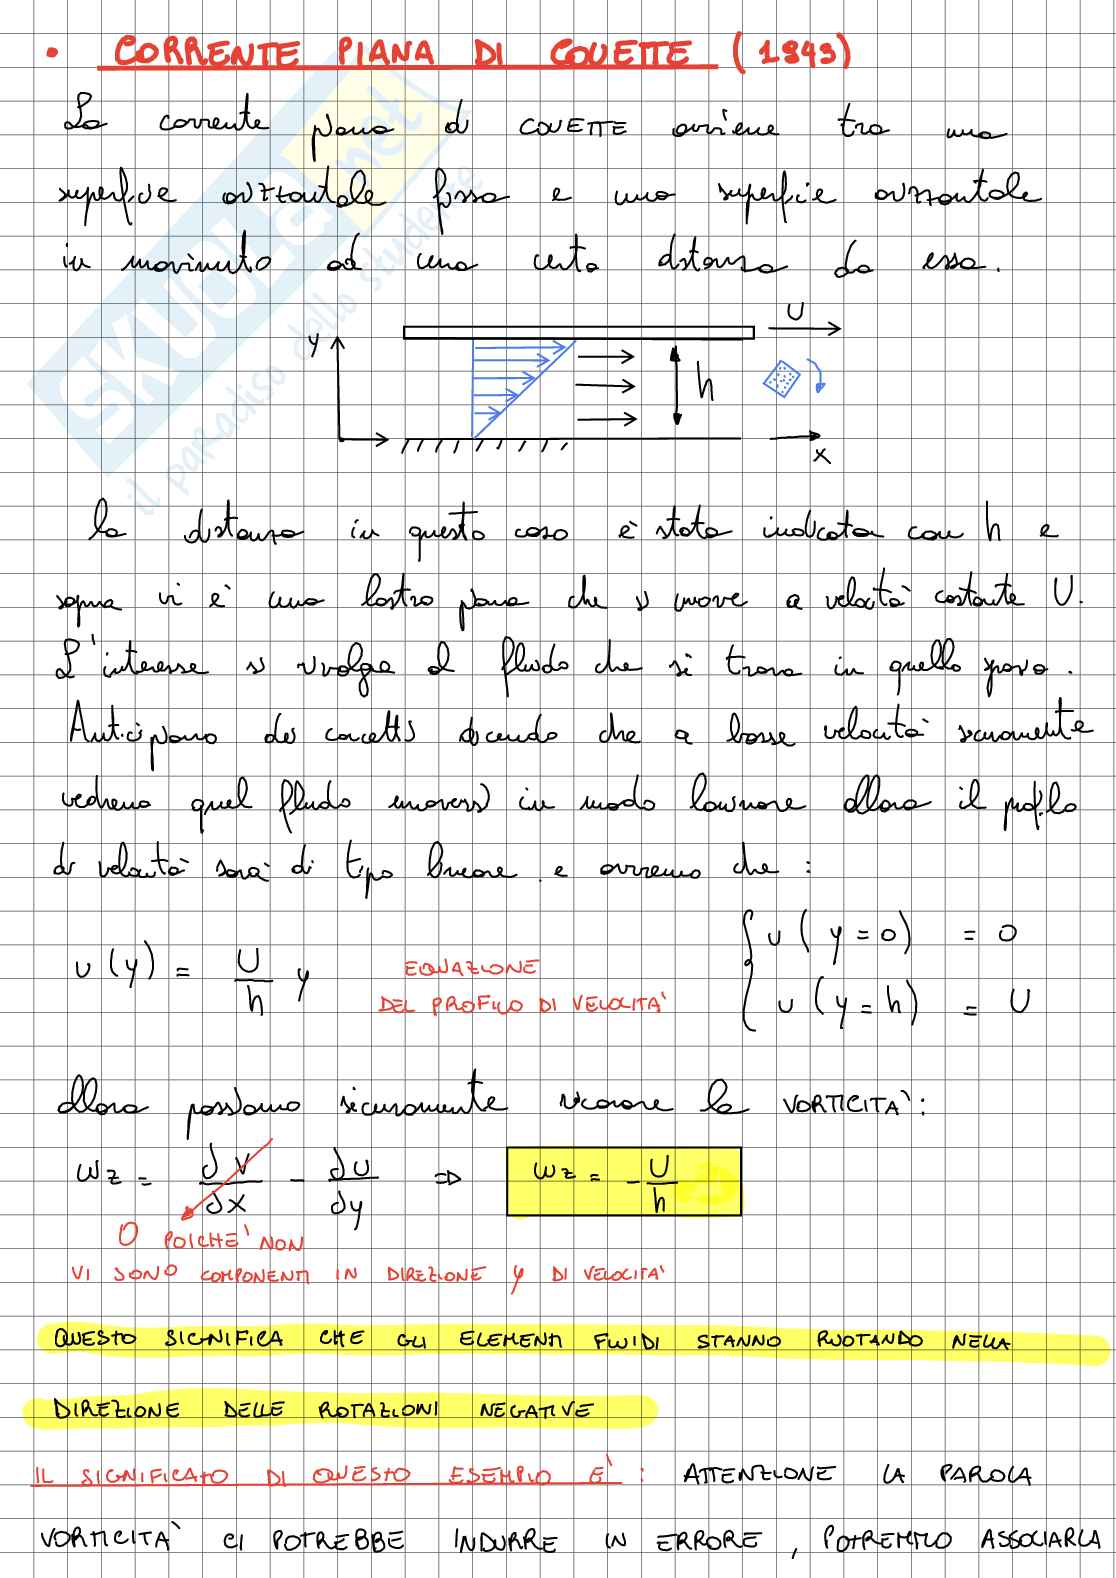 • CORRENTE PIANA DI COUETTE (1843)
La corrente piana di COUETTE avviene tra una
superficie orizzontale fissa e una superficie orizzontale
in movimento ad una certa distanza da essa.
U
y
h
x
la distanza in questo caso è stata indicata con h e
sopra vi è una lastra piana che si muove a velocità costante U.
L'interesse si rivolge al fluido che si trova in quello spazio.
Anticipiamo dei concetti dicendo che a basse velocità sicuramente
vedremo quel fluido muoversi in modo laminare allora il profilo
di velocità sarà di tipo lineare e avremo che :
u (y) = U/h y
EQUAZIONE
DEL PROFILO DI VELOCITA'
{ u ( y = 0 ) = 0
u ( y = h ) = U
allora possiamo sicuramente ricavare la VORTICITA' :
ωz = ∂v/∂x - ∂u/∂y ⇒ ωz = - U/h
0 POICHE' NON
VI SONO COMPONENTI IN DIREZIONE y DI VELOCITA'
QUESTO SIGNIFICA CHE GLI ELEMENTI FLUIDI STANNO RUOTANDO NELLA
DIREZIONE DELLE ROTAZIONI NEGATIVE
IL SIGNIFICATO DI QUESTO ESEMPIO E' : ATTENZIONE LA PAROLA
VORTICITA' CI POTREBBE INDURRE IN ERRORE , POTREMMO ASSOCIARLA
SKUOLA.net
il paradiso dello studente